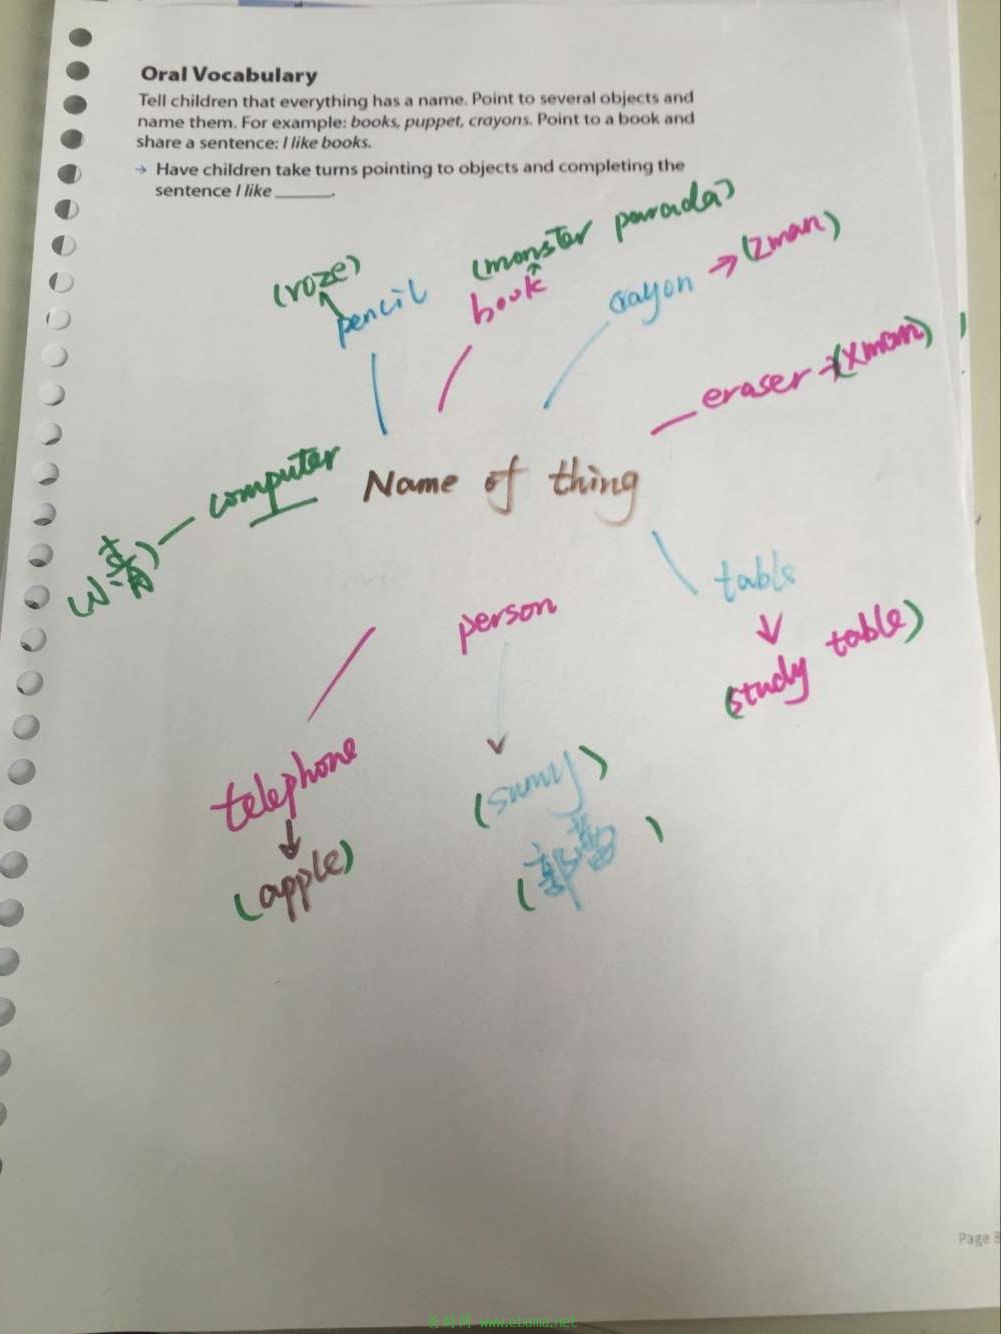 Oral Vocabulary
Tell children that everything has a name. Point to several objects and
name them. For example: books, puppet, crayons. Point to a book and
share a sentence: I like books.
→ Have children take turns pointing to objects and completing the
sentence I like ______.
(roze)
pencil
(monster parada)
book
crayon → (Zman)
eraser → (Xman)
(小青) — computer
Name of thing
table
(study table)
person
telephone
(apple)
(sumy)
Page 8
www.ebama.net